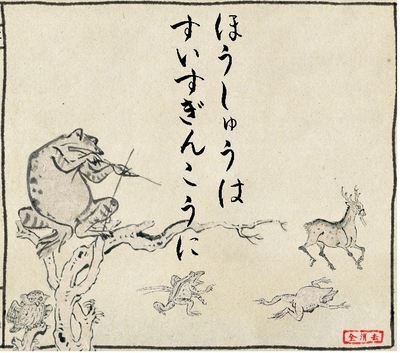 ほうしゅうは
すいすぎんこうに